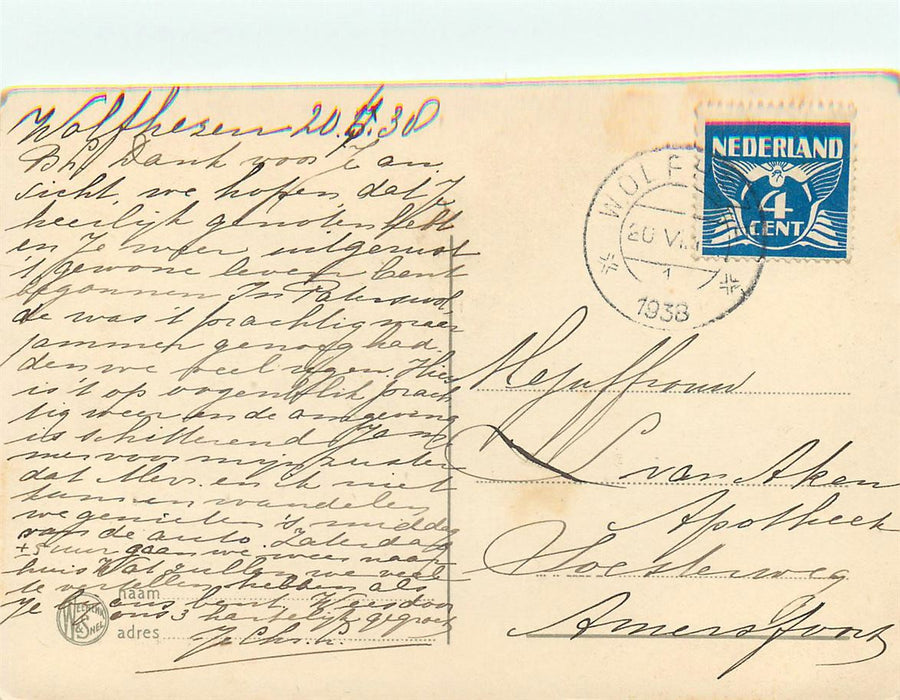 Wolfhezen 20.7.38
Dank voor Je an
sicht, we hopen, dat Je
heerlijk genoten hebt
en Je weer uitgerust
't gewone leven bent
begonnen. In Paterswol
de was 't prachtig maar
jammer genoeg had
den we veel regen. Hier
is 't op oogenblik prach
tig weer en de omgeving
is schitterend. Jam
mer voor mijn zuster
dat Mevr. en ik niet
kunnen wandelen,
we genieten 's middags
van de auto. Zaterdag
± 5 uur gaan we weer naar
huis. Wat zullen we veel
te vertellen hebben als
Je bij ons bent. Wees door
ons 3 hartelijk gegroet
naam
adres
WEENENK & SNEL
NEDERLAND
4
CENT
WOLF
20 VI
1
1938
Mejuffrouw
van Aken
Apotheek
Soesterweg
Amersfoort